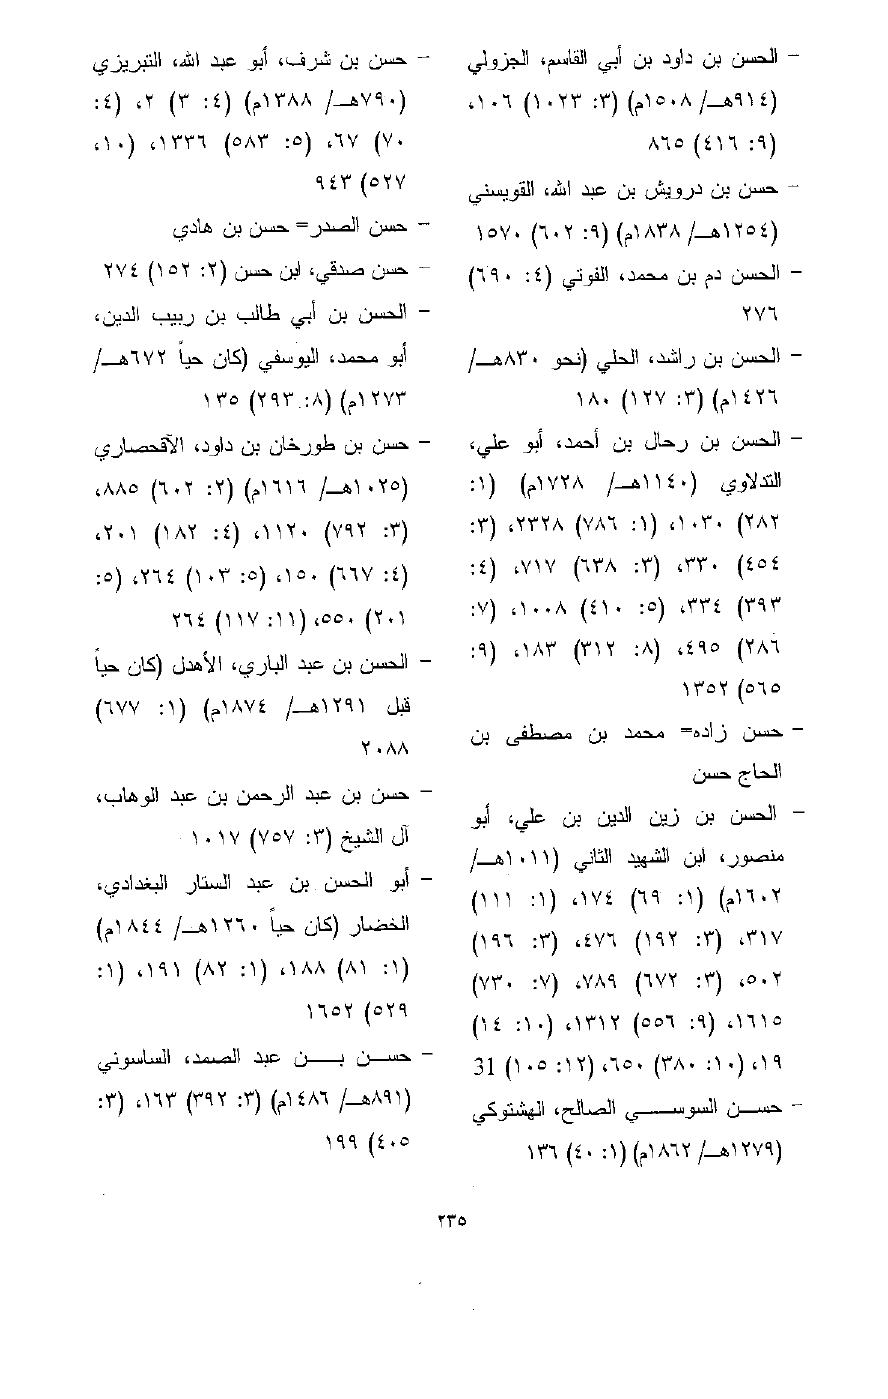 - الحسن بن داود بن أبي القاسم، الجزولي
(٩١٤هـ/ ١٥٠٨م) (٣: ١٠٢٣) ١٠٦،
(٩: ٤١٦) ٨٦٥
- حسن بن درويش بن عبد الله، القويسني
(١٢٥٤هـ/ ١٨٣٨م) (٩: ٦٠٢) ١٥٧٠
- الحسن دم بن محمد، الفوتي (٤: ٦٩٠)
٢٧٦
- الحسن بن راشد، الحلي (نحو ٨٣٠هـ/
١٤٢٦م) (٣: ١٢٧) ١٨٠
- الحسن بن رحال بن أحمد، أبو علي،
التدلاوي (١١٤٠هـ/ ١٧٢٨م) (١:
٢٨٢) ١٠٣٠، (١: ٧٨٦) ٢٣٢٨، (٣:
٤٥٤) ٣٣٠، (٣: ٦٣٨) ٧١٧، (٤:
٣٩٣) ٣٣٤، (٥: ٤١٠) ١٠٠٨، (٧:
٢٨٦) ٤٩٥، (٨: ٣١٢) ١٨٣، (٩:
٥٦٥) ١٣٥٢
- حسن زاده= محمد بن مصطفى بن
الحاج حسن
- الحسن بن زين الدين بن علي، أبو
منصور، ابن الشهيد الثاني (١٠١١هـ/
١٦٠٢م) (١: ٦٩) ١٧٤، (١: ١١١)
٣١٧، (٣: ١٩٢) ٤٧٦، (٣: ١٩٦)
٥٠٢، (٣: ٦٧٢) ٧٨٩، (٧: ٧٣٠)
١٦١٥، (٩: ٥٥٦) ١٣١٢، (١٠: ١٤)
١٩، (١٠: ٣٨٠) ٦٥٠، (١٢: ١٠٥) 31
- حسن السوسي الصالح، الهشتوكي
(١٢٧٩هـ/ ١٨٦٢م) (١: ٤٠) ١٣٦
- حسن بن شرف، أبو عبد الله، التبريزي
(٧٩٠هـ/ ١٣٨٨م) (٤: ٣) ٢، (٤:
٧٠) ٦٧، (٥: ٥٨٣) ١٣٣٦، (١٠،
٥٢٧) ٩٤٣
- حسن الصدر= حسن بن هادي
- حسن صدقي، ابن حسن (٢: ١٥٢) ٢٧٤
- الحسن بن أبي طالب بن ربيب الدين،
أبو محمد، اليوسفي (كان حياً ٦٧٢هـ/
١٢٧٣م) (٨: ٢٩٣) ١٣٥
- حسن بن طورخان بن داود، الآقحصاري
(١٠٢٥هـ/ ١٦١٦م) (٢: ٦٠٢) ٨٨٥،
(٣: ٧٩٢) ١١٢٠، (٤: ١٨٢) ٢٠١،
(٤: ٦٦٧) ١٥٠، (٥: ١٠٣) ٢٦٤، (٥:
٢٠١) ٥٥٠، (١١: ١١٧) ٢٦٤
- الحسن بن عبد الباري، الأهدل (كان حياً
قبل ١٢٩١هـ/ ١٨٧٤م) (١: ٦٧٧)
٢٠٨٨
- حسن بن عبد الرحمن بن عبد الوهاب،
آل الشيخ (٣: ٧٥٧) ١٠١٧
- أبو الحسن بن عبد الستار البغدادي،
الخضار (كان حياً ١٢٦٠هـ/ ١٨٤٤م)
(١: ٨١) ١٨٨، (١: ٨٢) ١٩١، (١:
٥٢٩) ١٦٥٢
- حسن بن عبد الصمد، الساسوني
(٨٩١هـ/ ١٤٨٦م) (٣: ٣٩٢) ١٦٣، (٣:
٤٠٥) ١٩٩
٢٣٥